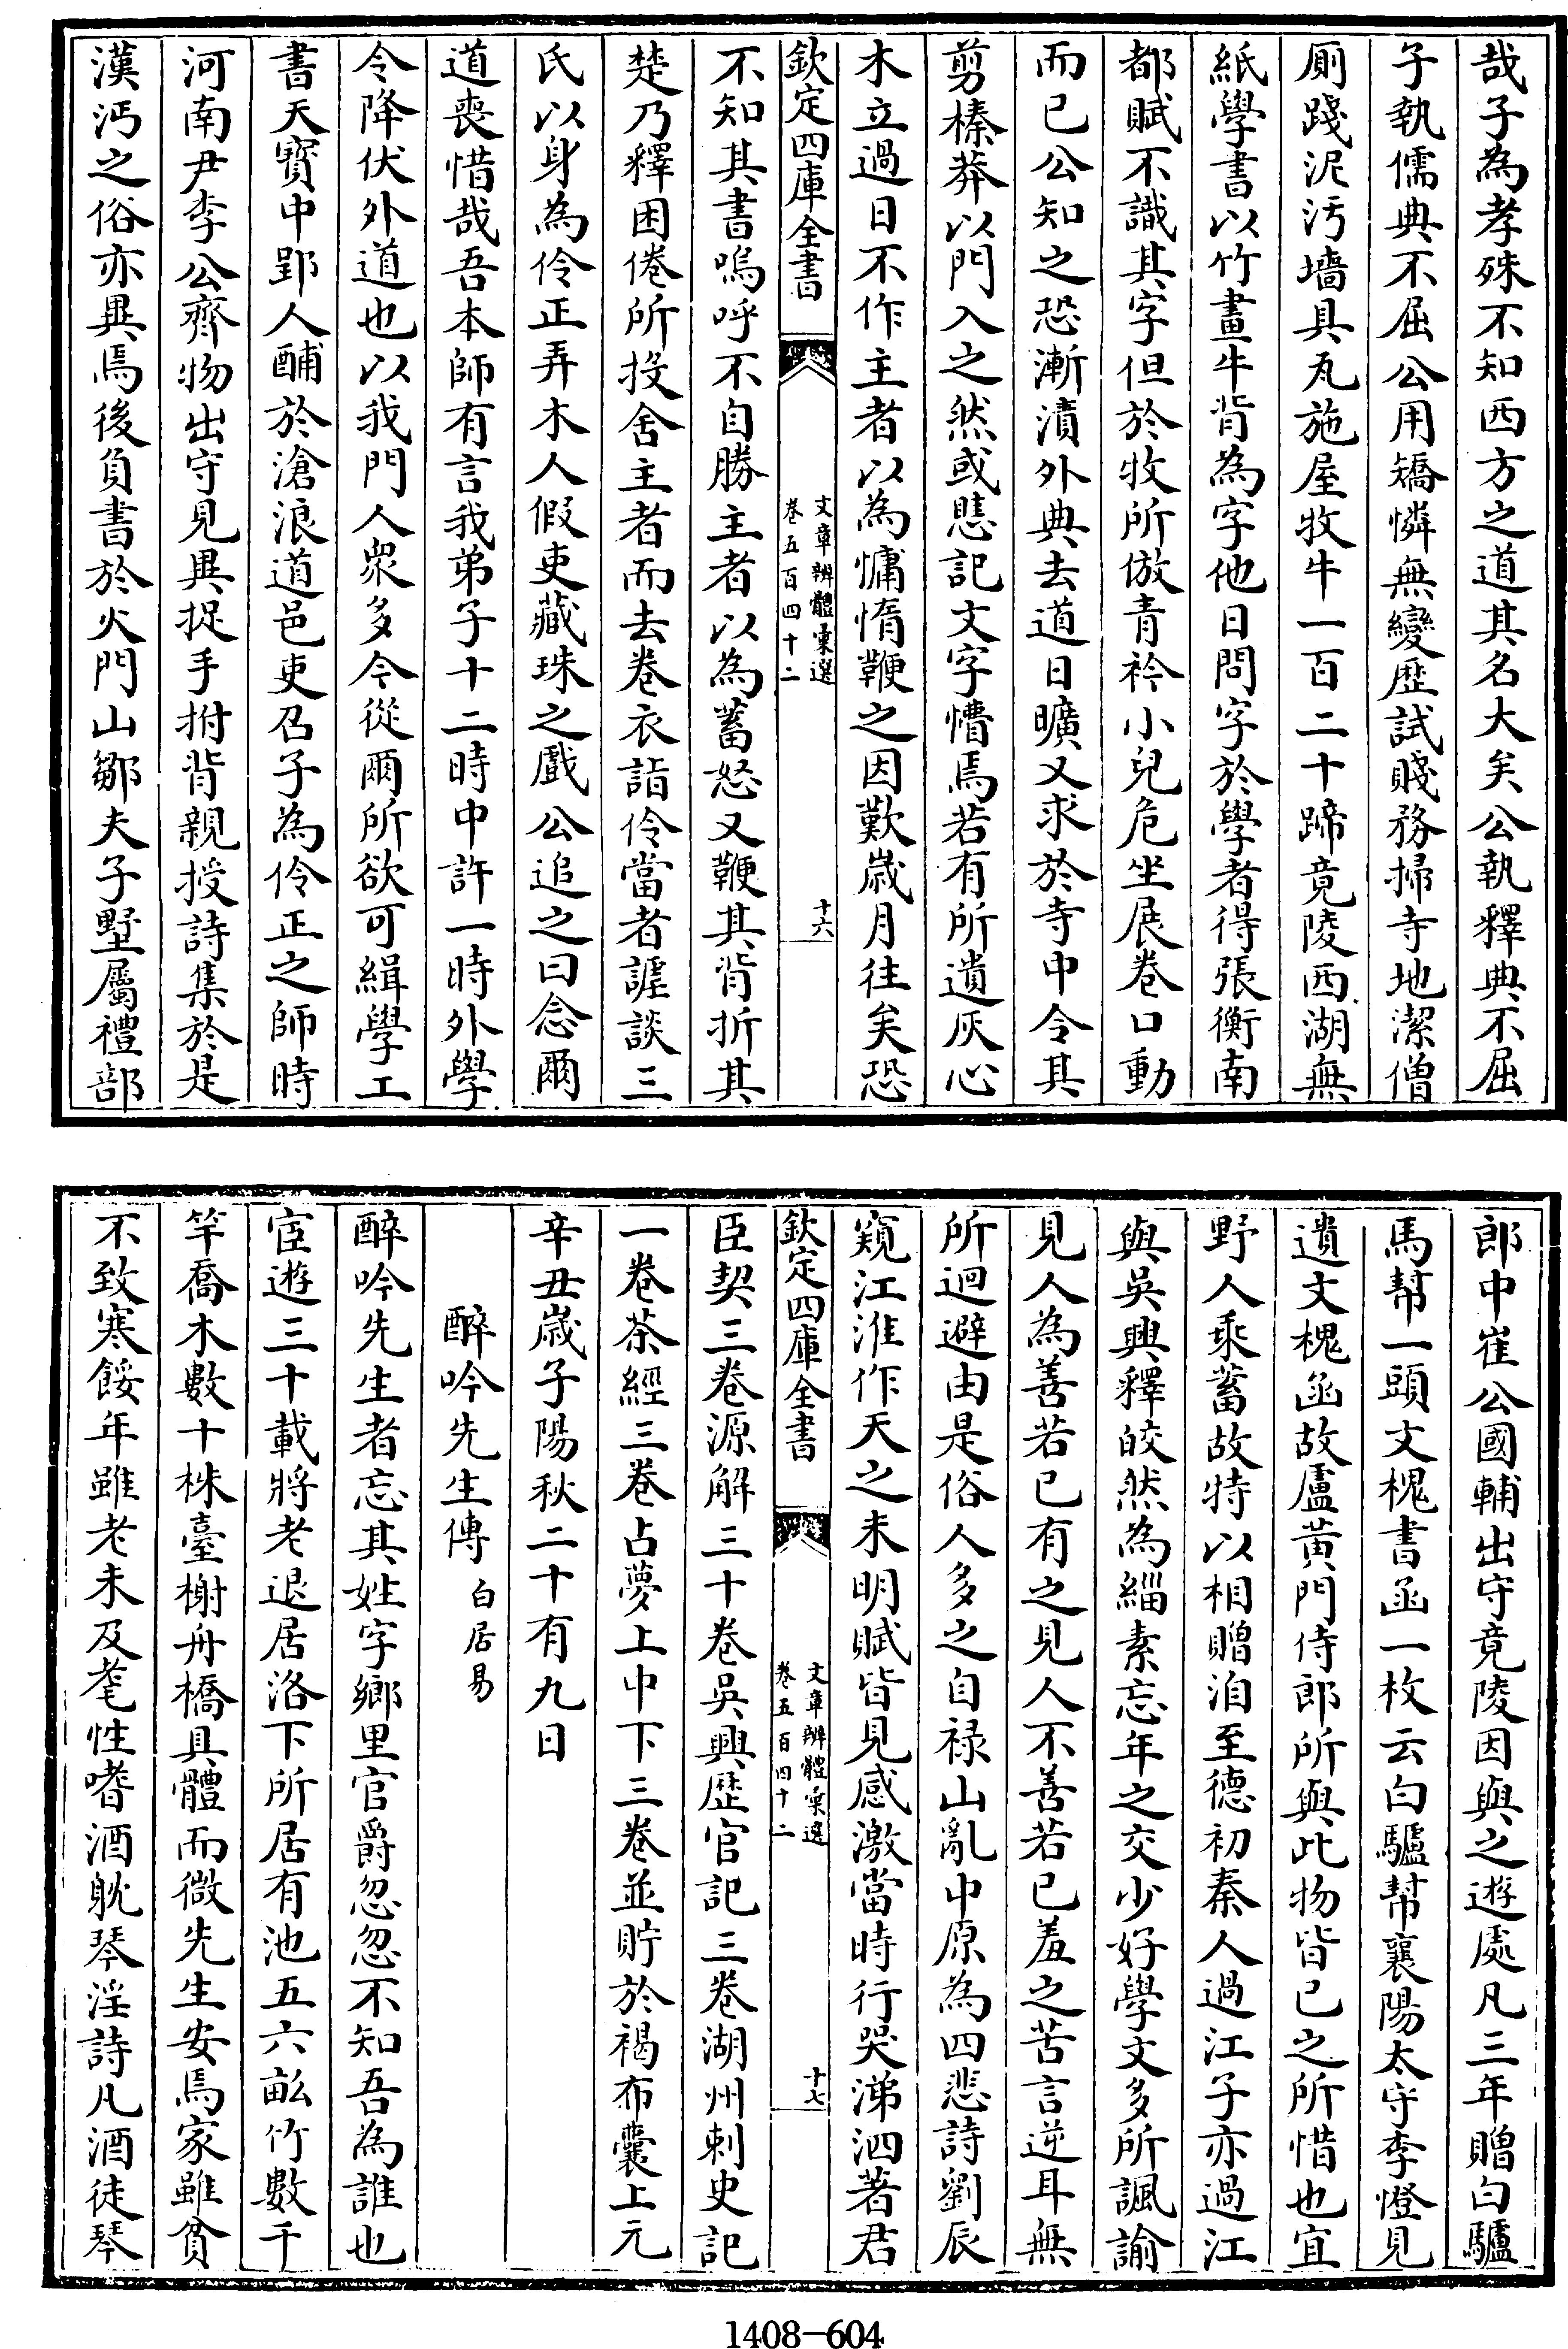 哉子為孝殊不知西方之道其名大矣公執釋典不屈
子執儒典不屈公用矯憐無變歷試賤務掃寺地潔僧
厠踐泥汚墻具瓦施屋牧牛一百二十蹄竟陵西湖無
紙學書以竹畫牛背為字他日問字於學者得張衡南
都賦不識其字但於牧所倣青衿小兒危坐展卷口動
而已公知之恐漸漬外典去道日曠又求於寺中令其
剪榛莽以門入之然或懸記文字懵焉若有所遺灰心
木立過日不作主者以為慵惰鞭之因歎歲月往矣恐
欽定四庫全書
文章辨體彙選
卷五百四十二
十六
不知其書嗚呼不自勝主者以為蓄怒又鞭其背折其
楚乃釋困倦所投舍主者而去卷衣詣伶當者謔談三
氏以身為伶正弄木人假吏藏珠之戲公追之曰念爾
道喪惜哉吾本師有言我弟子十二時中許一時外學
令降伏外道也以我門人衆多今從爾所欲可緝學工
書天寶中郢人酺於滄浪道邑吏召子為伶正之師時
河南尹李公齊物出守見異捉手拊背親授詩集於是
漢沔之俗亦異焉後負書於火門山鄒夫子墅屬禮部
郎中崔公國輔出守竟陵因與之遊處凡三年贈白驢
馬幇一頭文槐書函一枚云白驢幇襄陽太守李憕見
遺文槐函故盧黄門侍郎所與此物皆已之所惜也宜
野人乘蓄故特以相贈洎至德初秦人過江子亦過江
與吳興釋皎然為緇素忘年之交少好學文多所諷諭
見人為善若已有之見人不善若已羞之苦言逆耳無
所迴避由是俗人多之自禄山亂中原為四悲詩劉辰
窺江淮作天之未明賦皆見感激當時行哭涕泗著君
欽定四庫全書
文章辨體彙選
卷五百四十二
十七
臣契三卷源解三十卷吳興歷官記三卷湖州刺史記
一卷茶經三卷占夢上中下三卷並貯於褐布囊上元
辛丑歲子陽秋二十有九日
醉吟先生傳 白居易
醉吟先生者忘其姓字鄉里官爵忽忽不知吾為誰也
宦遊三十載將老退居洛下所居有池五六畝竹數千
竿喬木數十株臺榭舟橋具體而微先生安焉家雖貧
不致寒餒年雖老未及耄性嗜酒躭琴淫詩凡酒徒琴
1408-604